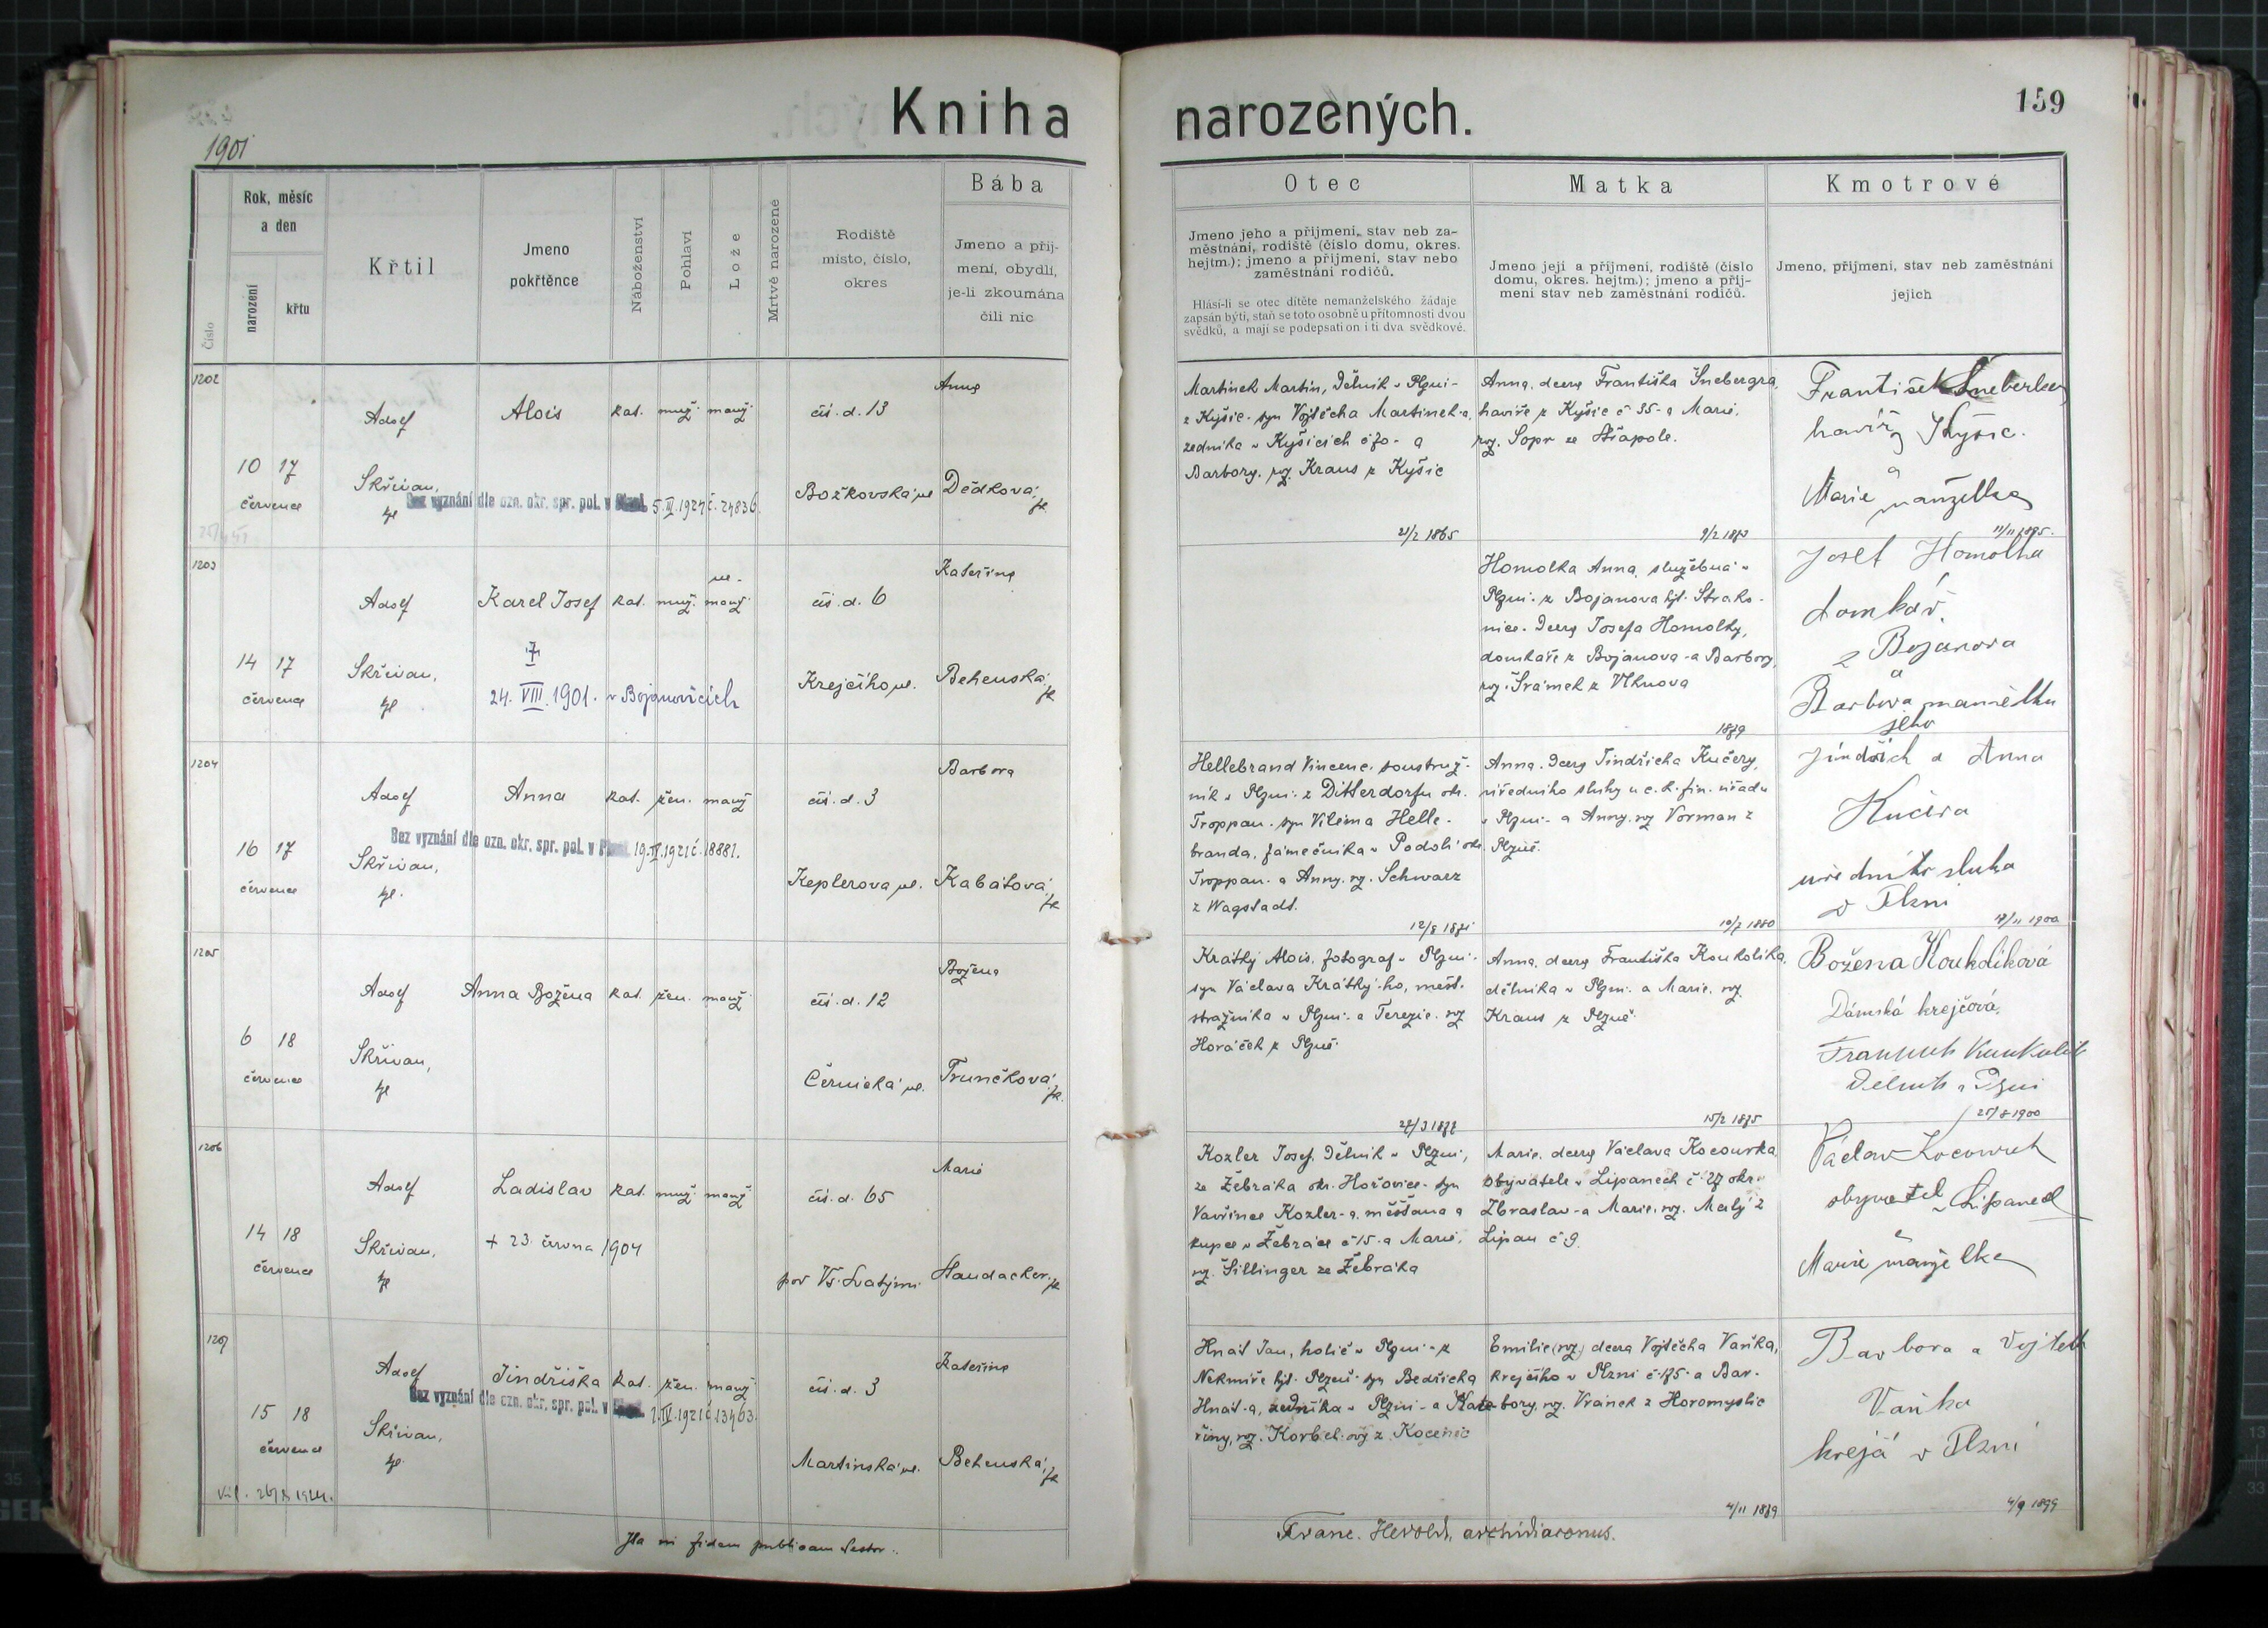 Kniha narozených.
159
1901
Číslo
Rok, měsíc
a den
narození
křtu
Křtil
Jmeno
pokřtěnce
Náboženství
Pohlaví
Lože
Mrtvě narozené
Rodiště
místo, číslo,
okres
Bába
Jmeno a příj-
mení, obydlí,
je-li zkoumána
čili nic
Otec
Jmeno jeho a příjmení, stav neb za-
městnání, rodiště (číslo domu, okres.
hejtm.); jmeno a příjmení, stav nebo
zaměstnání rodičů.
Hlásí-li se otec dítěte nemanželského žádaje
zapsán býti, staň se toto osobně u přítomnosti dvou
svědků, a mají se podepsati on i ti dva svědkové.
Matka
Jmeno její a příjmení, rodiště (číslo
domu, okres. hejtm.); jmeno a příj-
mení stav neb zaměstnání rodičů.
Kmotrové
Jmeno, příjmení, stav neb zaměstnání
jejich
1202
10 17
července
Adolf
Skřivan,
Alois
kat. muž. manž.
čís. d. 13
Božkovská ul.
Anna
Dědková
Bez vyznání dle ozn. okr. spr. pol. v
Martinek Martin, dělník v Plzni-
z Kyšic- syn Vojtěcha Martinek-a,
zedníka v Kyšicích č 70- a
Barbory, roz. Kraus z Kyšic
21/2 1865
Anna, dcera Františka Šnebergra,
havíře z Kyšic č 35- a Marie,
roz. Sopr ze
František Šneberker
havíř z Kyšic.
a
Marie manželka
11/11 1895.
1203
14 17
července
Adolf
Skřivan,
Karel Josef
kat. muž. ne-
manž.
čís. d. 6
Krejčího ul.
Kateřina
Behenská
24. VIII. 1901. v Bojanovicích
Homolka Anna, služebná v
Plzni- z Bojanova hjt. Strako-
nice- dcera Josefa Homolky,
domkáře z Bojanova- a Barbory,
roz. Šrámek z Vlknova
1879
Josef Homolka
domkář
z Bojanova
a
Barbora manželka
jeho
1204
16 17
července
Adolf
Skřivan,
Anna
kat. žen. manž.
čís. d. 3
Keplerova ul.
Barbora
Kabátová
Bez vyznání dle ozn. okr. spr. pol. v
Hellebrand Vincenc, soustruž-
ník v Plzni- z Ditterdorfu okr.
Troppau- syn Viléma Helle-
branda, zámečníka v Podolí okr.
Troppau- a Anny, roz. Schwarz
z Wagstadt.
12/8 1871
Anna, dcera Jindřicha Kučery,
úředního sluhy u c. k. fin. úřadu
v Plzni- a Anny, roz. Vorman z
Plzně.
10/7 1880
Jindřich a Anna
Kučera
úřední sluha
v Plzni
18/11 1900
1205
6 18
července
Adolf
Skřivan,
Anna Božena
kat. žen. manž.
čís. d. 12
Černická ul.
Božena
Trunečková
Krátký Alois, fotograf v Plzni-
syn Václava Krátký-ho, měst.
strážníka v Plzni- a Terezie, roz.
Horáček z Plzně.
27/3 1877
Anna, dcera Františka Koukolíka,
dělníka v Plzni- a Marie, roz.
Kraus z Plzně.
15/2 1875
Božena Koukolíková
Dámská krejčová,
Dělník v Plzni
25/8 1900
1206
14 18
července
Adolf
Skřivan,
Ladislav
kat. muž. manž.
čís. d. 65
Marie
+ 23. června 1904
Kozler Josef, dělník v Plzni,
ze Žebráka okr. Hořovice- syn
Vavřince Kozler-a, měšťana a
kupce v Žebráce č 15- a Marie,
roz. Šillinger ze Žebráka
Marie, dcera Václava Kocourka,
obyvatele v Lipanech č 27 okr.
Zbraslav- a Marie, roz. Malý z
Lipan č 9.
Václav Kocourek
obyvatel v Lipanech
a
Marie manželka
1207
15 18
července
Adolf
Skřivan,
Jindřiška
kat. žen. manž.
čís. d. 3
Martinská ul.
Kateřina
Behenská
Bez vyznání dle ozn. okr. spr. pol. v
Hnát Jan, holič v Plzni- z
Nekmíře hjt. Plzeň- syn Bedřicha
Hnát-a, zedníka v Plzni- a Kate-
řiny, roz. Korbel-ovy z Kocenic
Emilie (roz) dcera Vojtěcha Vaňka,
krejčího v Plzni č 175- a Bar-
bory, roz. Vránek z Horomyslic
4/11 1879
Barbora a Vojtěch
Vaňka
krejčí v Plzni
4/9 1899
Ita in fidem publicam testor.
Franc. Herold, archidiaconus.